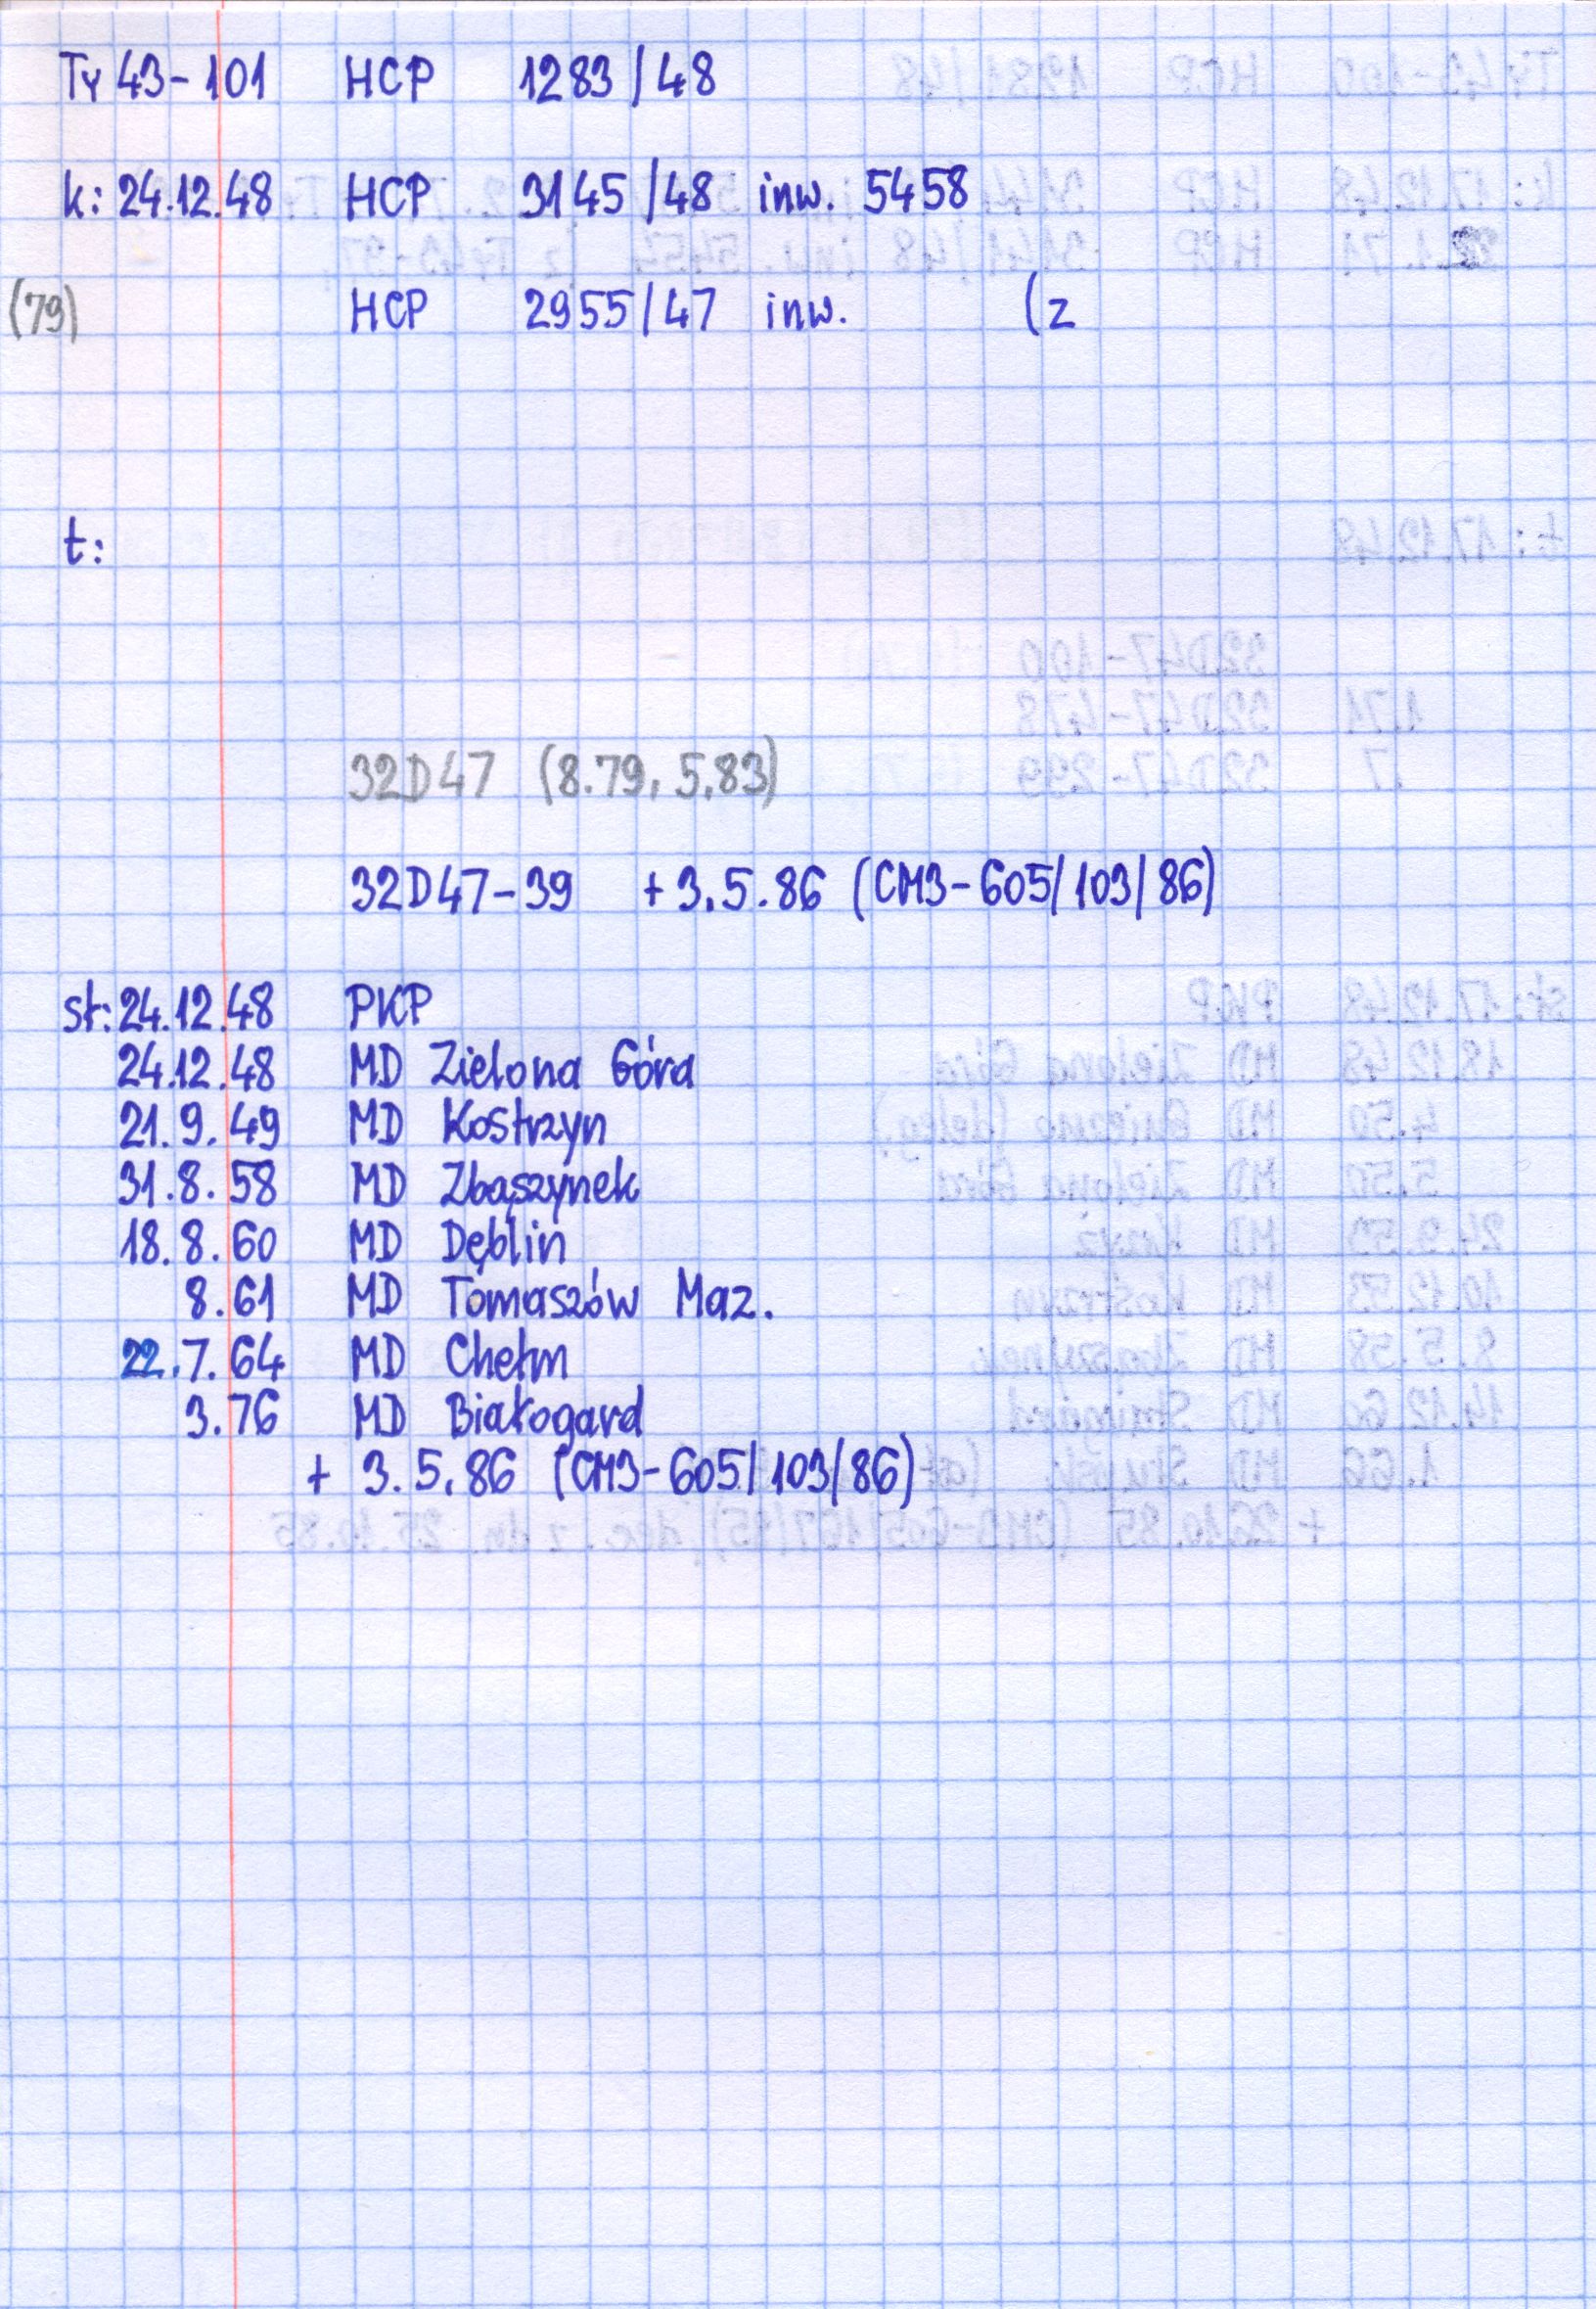 Ty 43-101 HCP 1283/48
k: 24.12.48 HCP 3145/48 inw. 5458
(79) HCP 2955/47 inw. (z
t:
32D47 (8.79, 5.83)
32D47-39 + 3.5.86 (CM3-605/103/86)
st: 24.12.48 PKP
24.12.48 MD Zielona Góra
21.9.49 MD Kostrzyn
31.8.58 MD Zbąszynek
18.8.60 MD Dęblin
8.61 MD Tomaszów Maz.
22.7.64 MD Chełm
3.76 MD Białogard
+ 3.5.86 (CM3-605/103/86)